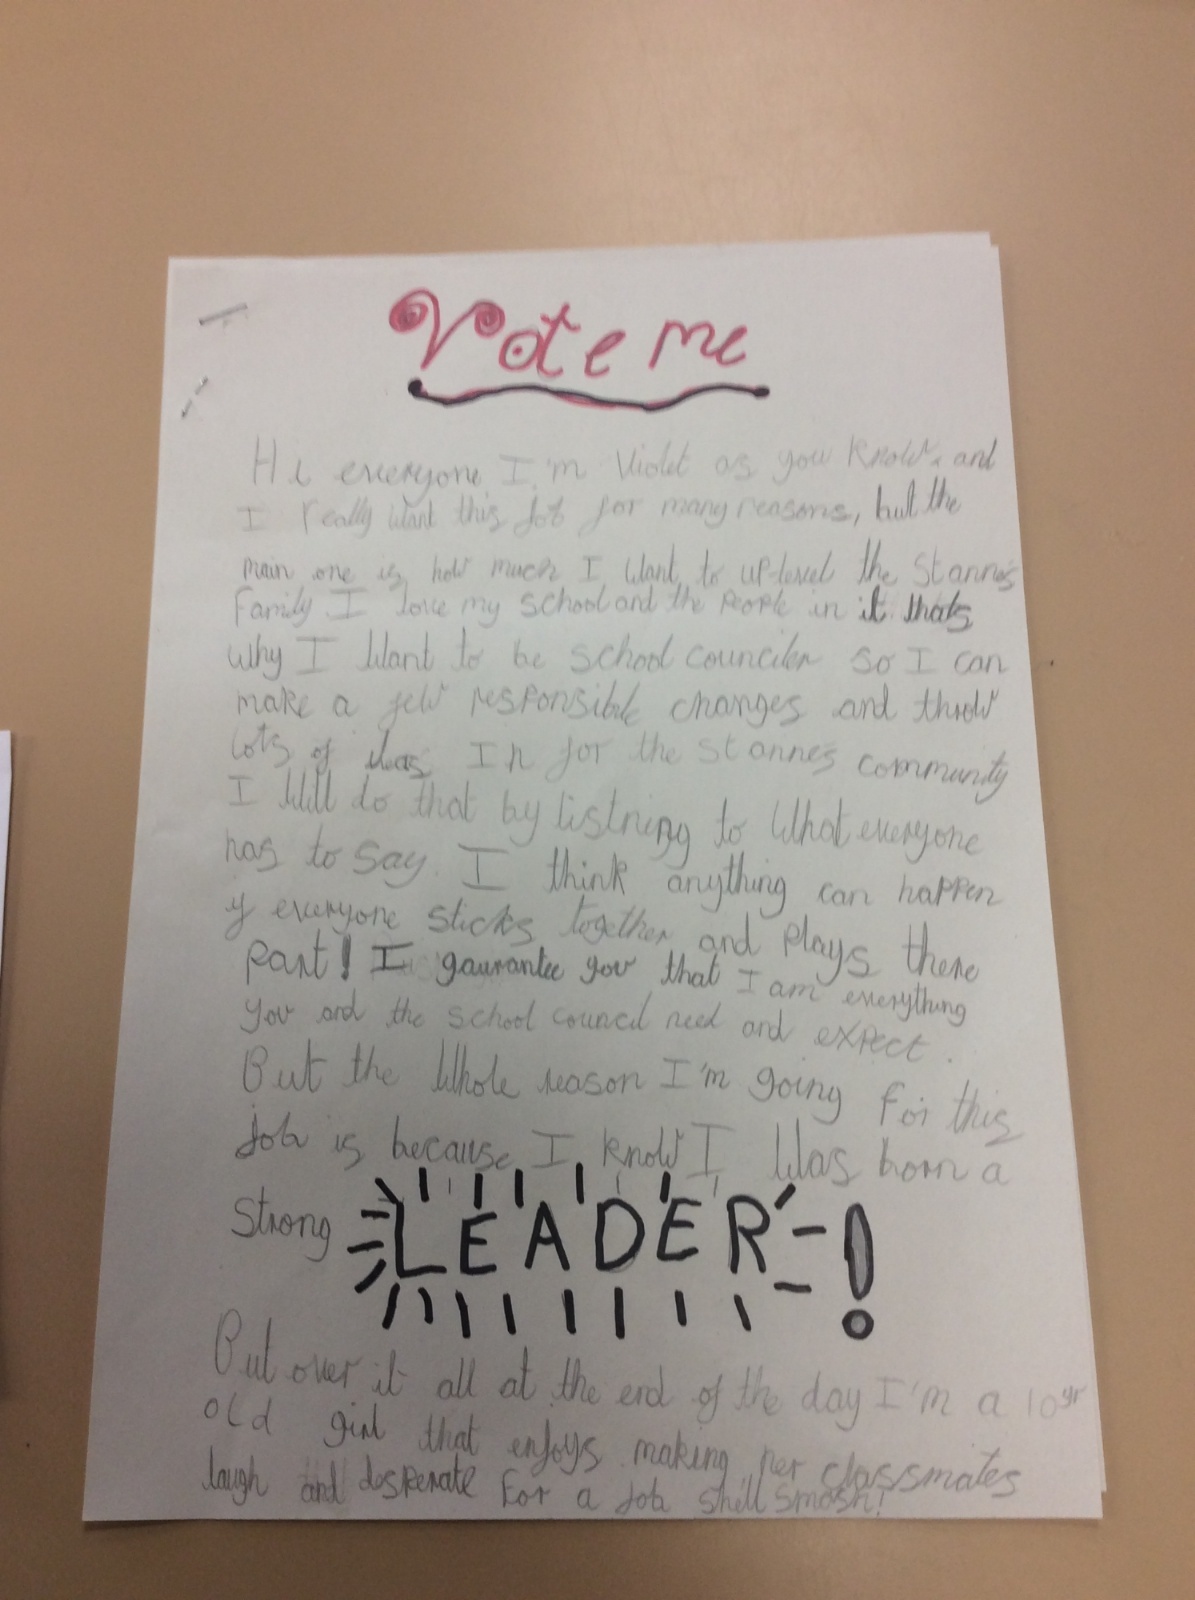 Vote me
Hi everyone I'm Violet as you know, and
I really want this job for many reasons, but the
main one is how much I want to up-level the St anne's
family I love my school and the people in it. thats
why I want to be school counciler so I can
make a few responsible changes and throw
lots of idas In for the St anne's community
I will do that by listning to what everyone
has to say. I think anything can happen
if everyone sticks together and plays there
part! I gaurantee you that I am everything
you and the school council need and expect.
But the whole reason I'm going for this
job is because I know I was born a
strong LEADER!
But over it all at the end of the day I'm a 10yr
old girl that enjoys making her classmates
laugh and desperate for a job shell smash!